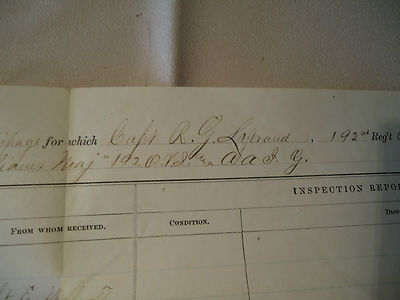 for which Capt R. G. 192nd Reg't
Maj 192 O.V.I. & a a a I. G.
INSPECTION REPOR
FROM WHOM RECEIVED.
CONDITION.
DISP